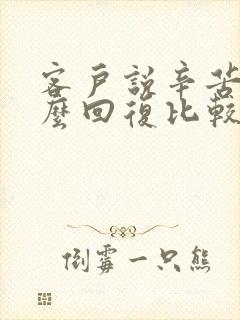 客戶說辛苦
麼回復比較
倒霉一只熊